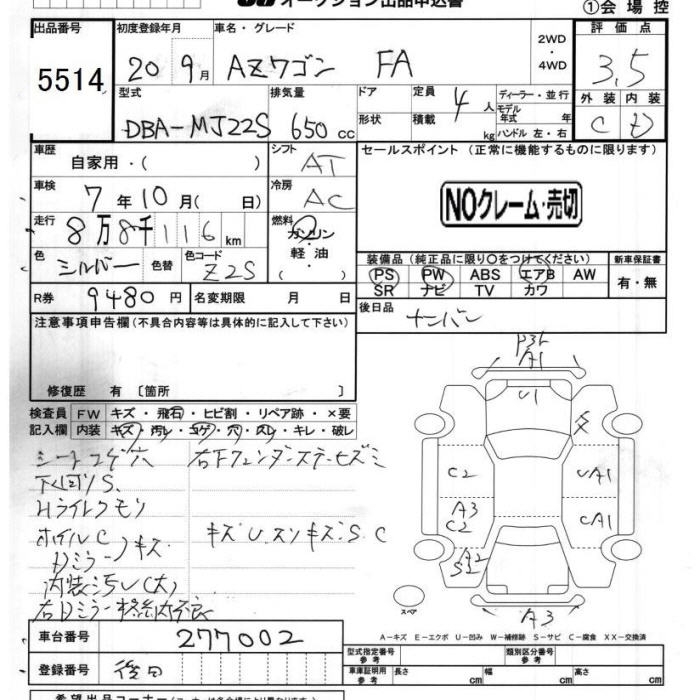 オークション出品申込書
①会場控
出品番号
5514
初度登録年月
20 9月
車名・グレード
AZワゴン FA
2WD
・
4WD
評価点
3.5
外装 内装
C D
型式
DBA-MJ22S
排気量
650 cc
ドア
形状
定員
4人
積載
kg
ディーラー・並行
モデル年式 年
ハンドル 左・右
車歴
自家用・( )
シフト
AT
車検
7年10月( 日)
冷房
AC
走行
8万8千116km
燃料
ガソリン
軽油
・( )
色
シルバー
色替
色コード
Z2S
R券
9480円
名変期限 月 日
セールスポイント (正常に機能するものに限ります)
NOクレーム・売切
装備品 (純正品に限り○をつけてください)
PS PW ABS エアB AW
SR ナビ TV カワ
新車保証書
有・無
後日品
ナンバン
注意事項申告欄(不具合内容等は具体的に記入して下さい)
修復歴 有〔箇所 〕
検査員記入欄
FW キズ・飛石・ヒビ割・リペア跡・×要
内装 キズ・汚レ・コゲ・穴・スレ・キレ・破レ
シートコゲ穴
右Fフェンダーステーセズミ
下回りS.
Hライトクモリ
ホイルC
キズU.スリキズ.S C
Dミラーノキズ
内装汚レ(大)
右Dミラー格納不良
A1
U1
C2
UA1
A3
C2
CA1
A2
S2
A3
スペア
A-キズ E-エクボ U-凹み W-補修跡 S-サビ C-腐食 XX-交換済
車台番号
277002
登録番号
後日
型式指定番号
参考
類別区分番号
参考
参考
長さ cm
幅 cm
高さ cm
希望出品コーナー